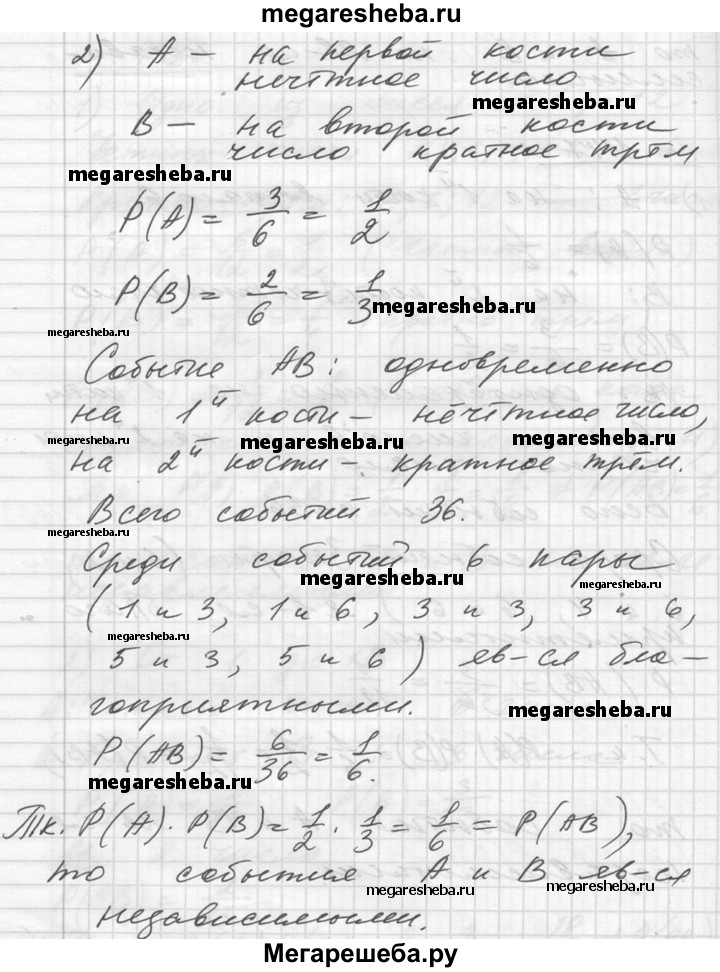 megaresheba.ru
2) A – на первой кости
нечётное число
megaresheba.ru
B – на второй кости
число кратное трём
megaresheba.ru
P(A) = 3/6 = 1/2
P(B) = 2/6 = 1/3
megaresheba.ru
megaresheba.ru
Событие AB: одновременно
на 1й кости – нечётное число,
megaresheba.ru megaresheba.ru megaresheba.ru
на 2й кости – кратное трём.
Всего событий 36.
megaresheba.ru
Среди событий 6 пары
megaresheba.ru
(1 и 3, 1 и 6, 3 и 3, 3 и 6,
megaresheba.ru
5 и 3, 5 и 6) яв-ся бла-
гоприятными.
megaresheba.ru
P(AB) = 6/36 = 1/6.
megaresheba.ru
Тк. P(A) · P(B) = 1/2 · 1/3 = 1/6 = P(AB),
то события A и B яв-ся
megaresheba.ru megaresheba.ru
независимыми.
Мегарешеба.ру